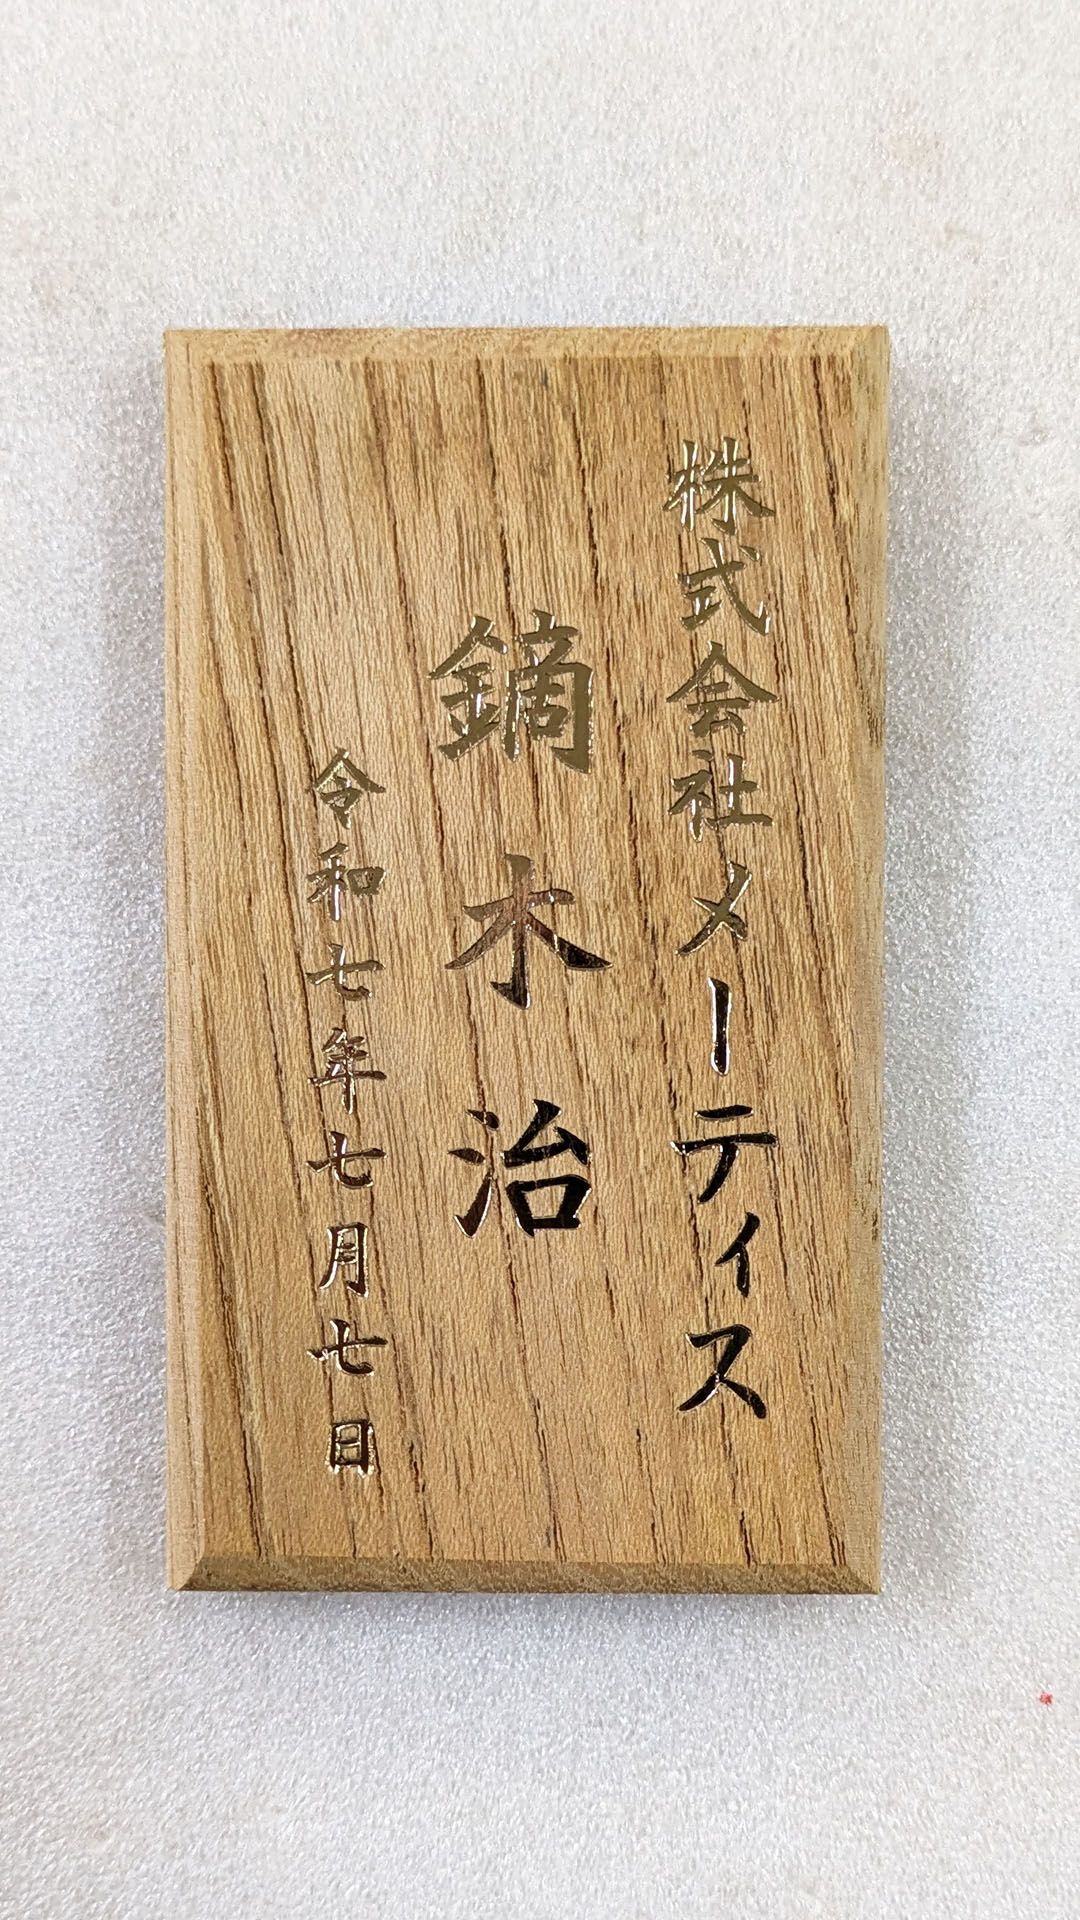 株式会社メーティス
鏑木治
令和七年七月七日